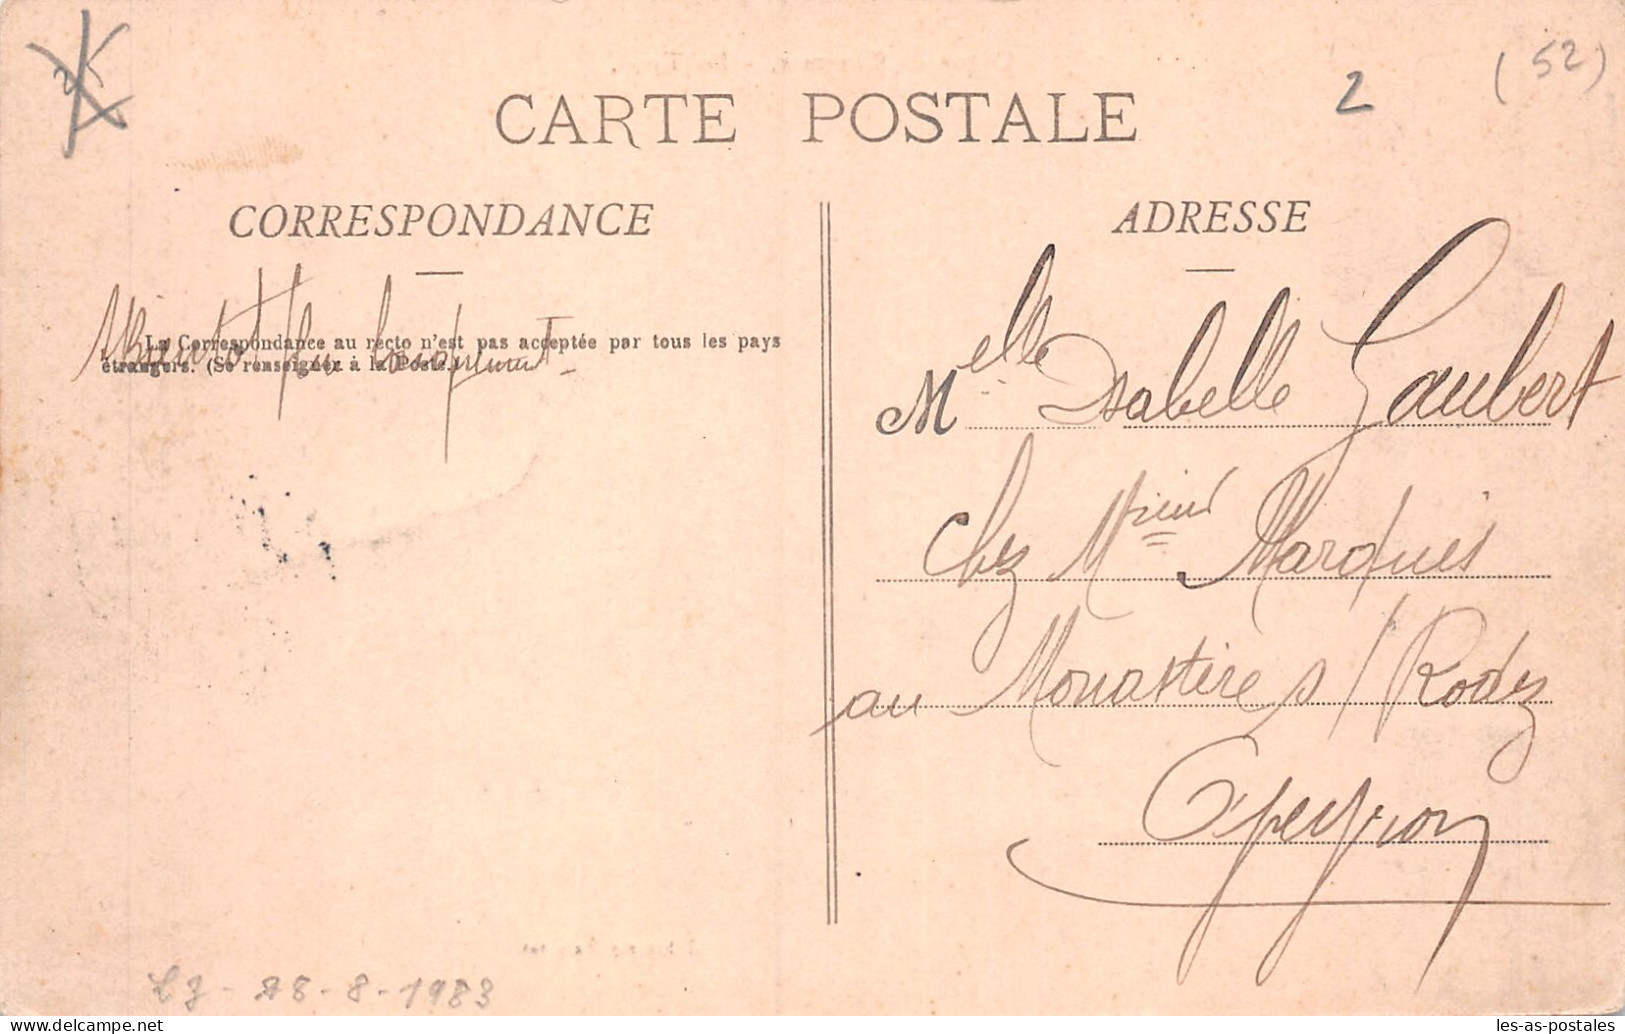 2
(52)
CARTE POSTALE
CORRESPONDANCE
La Correspondance au recto n'est pas acceptée par tous les pays
étrangers. (Se renseigner à la Poste.)
ADRESSE
Melle Isabelle Gaubert
chez Mrieur Marques
au Monastère s/ Rodez
28-8-1983
les-as-postales
delcampe.net